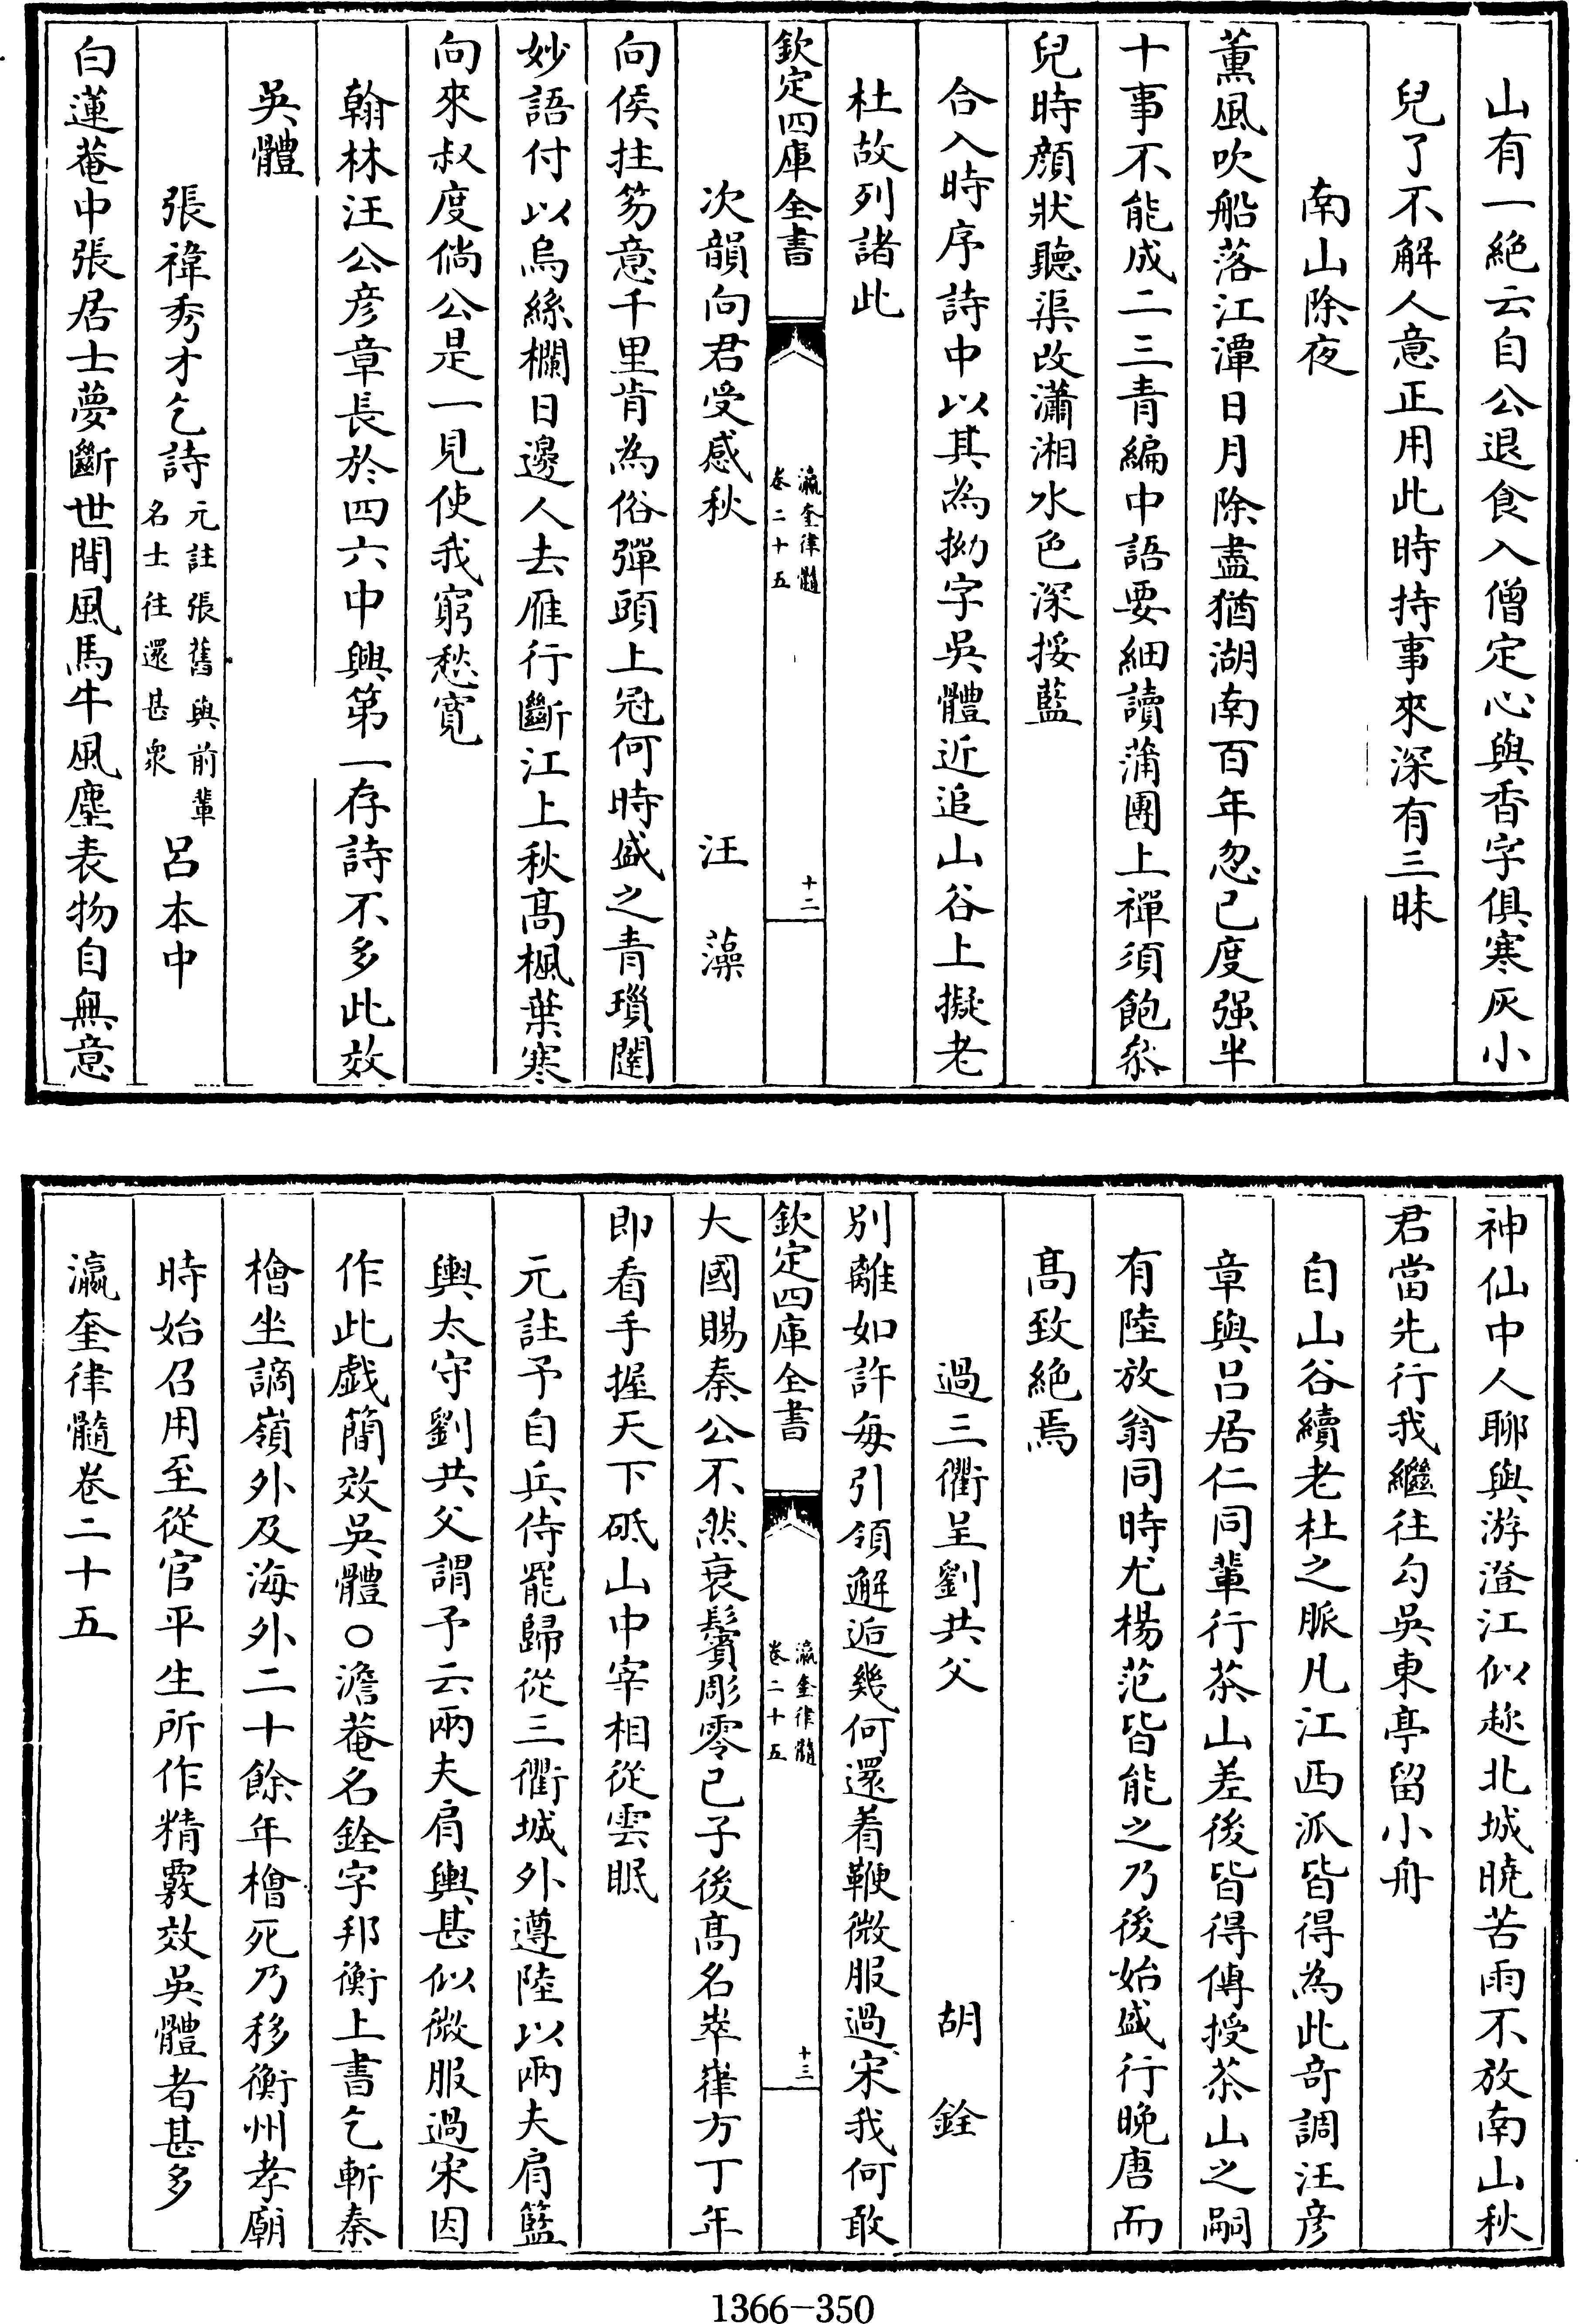 山有一絶云自公退食入僧定心與香字俱寒灰小
兒了不解人意正用此時持事來深有三昧
南山除夜
薫風吹船落江潭日月除盡猶湖南百年忽已度强半
十事不能成二三青編中語要細讀蒲團上禪須飽叅
兒時顔狀聽渠改瀟湘水色深挼藍
合入時序詩中以其為拗字吳體近追山谷上擬老
杜故列諸此
欽定四庫全書
瀛奎律髓
卷二十五
十二
次韻向君受感秋 汪藻
向侯拄笏意千里肯為俗彈頭上冠何時盛之青瑣闥
妙語付以烏絲欄日邊人去雁行斷江上秋髙楓葉寒
向來叔度倘公是一見使我窮愁寛
翰林汪公彦章長於四六中興第一存詩不多此效
吳體
張禕秀才乞詩 元註張舊與前輩 名士往還甚衆 呂本中
白蓮菴中張居士夢斷世間風馬牛風塵表物自無意
神仙中人聊與游澄江似趂北城曉苦雨不放南山秋
君當先行我繼往勾吳東亭留小舟
自山谷續老杜之脈凡江西派皆得為此竒調汪彦
章與呂居仁同輩行茶山差後皆得傳授茶山之嗣
有陸放翁同時尤楊范皆能之乃後始盛行晚唐而
髙致絶焉
過三衢呈劉共父 胡銓
別離如許每引領邂逅幾何還着鞭微服過宋我何敢
欽定四庫全書
瀛奎律髓
卷二十五
十三
大國賜秦公不然衰鬢彫零已子後髙名崒嵂方丁年
即看手握天下砥山中宰相從雲眠
元註予自兵侍罷歸從三衢城外遵陸以兩夫肩籃
輿太守劉共父謂予云兩夫肩輿甚似微服過宋因
作此戲簡效吳體〇澹菴名銓字邦衡上書乞斬秦
檜坐謫嶺外及海外二十餘年檜死乃移衡州孝廟
時始召用至從官平生所作精覈效吳體者甚多
瀛奎律髓卷二十五
1366-350